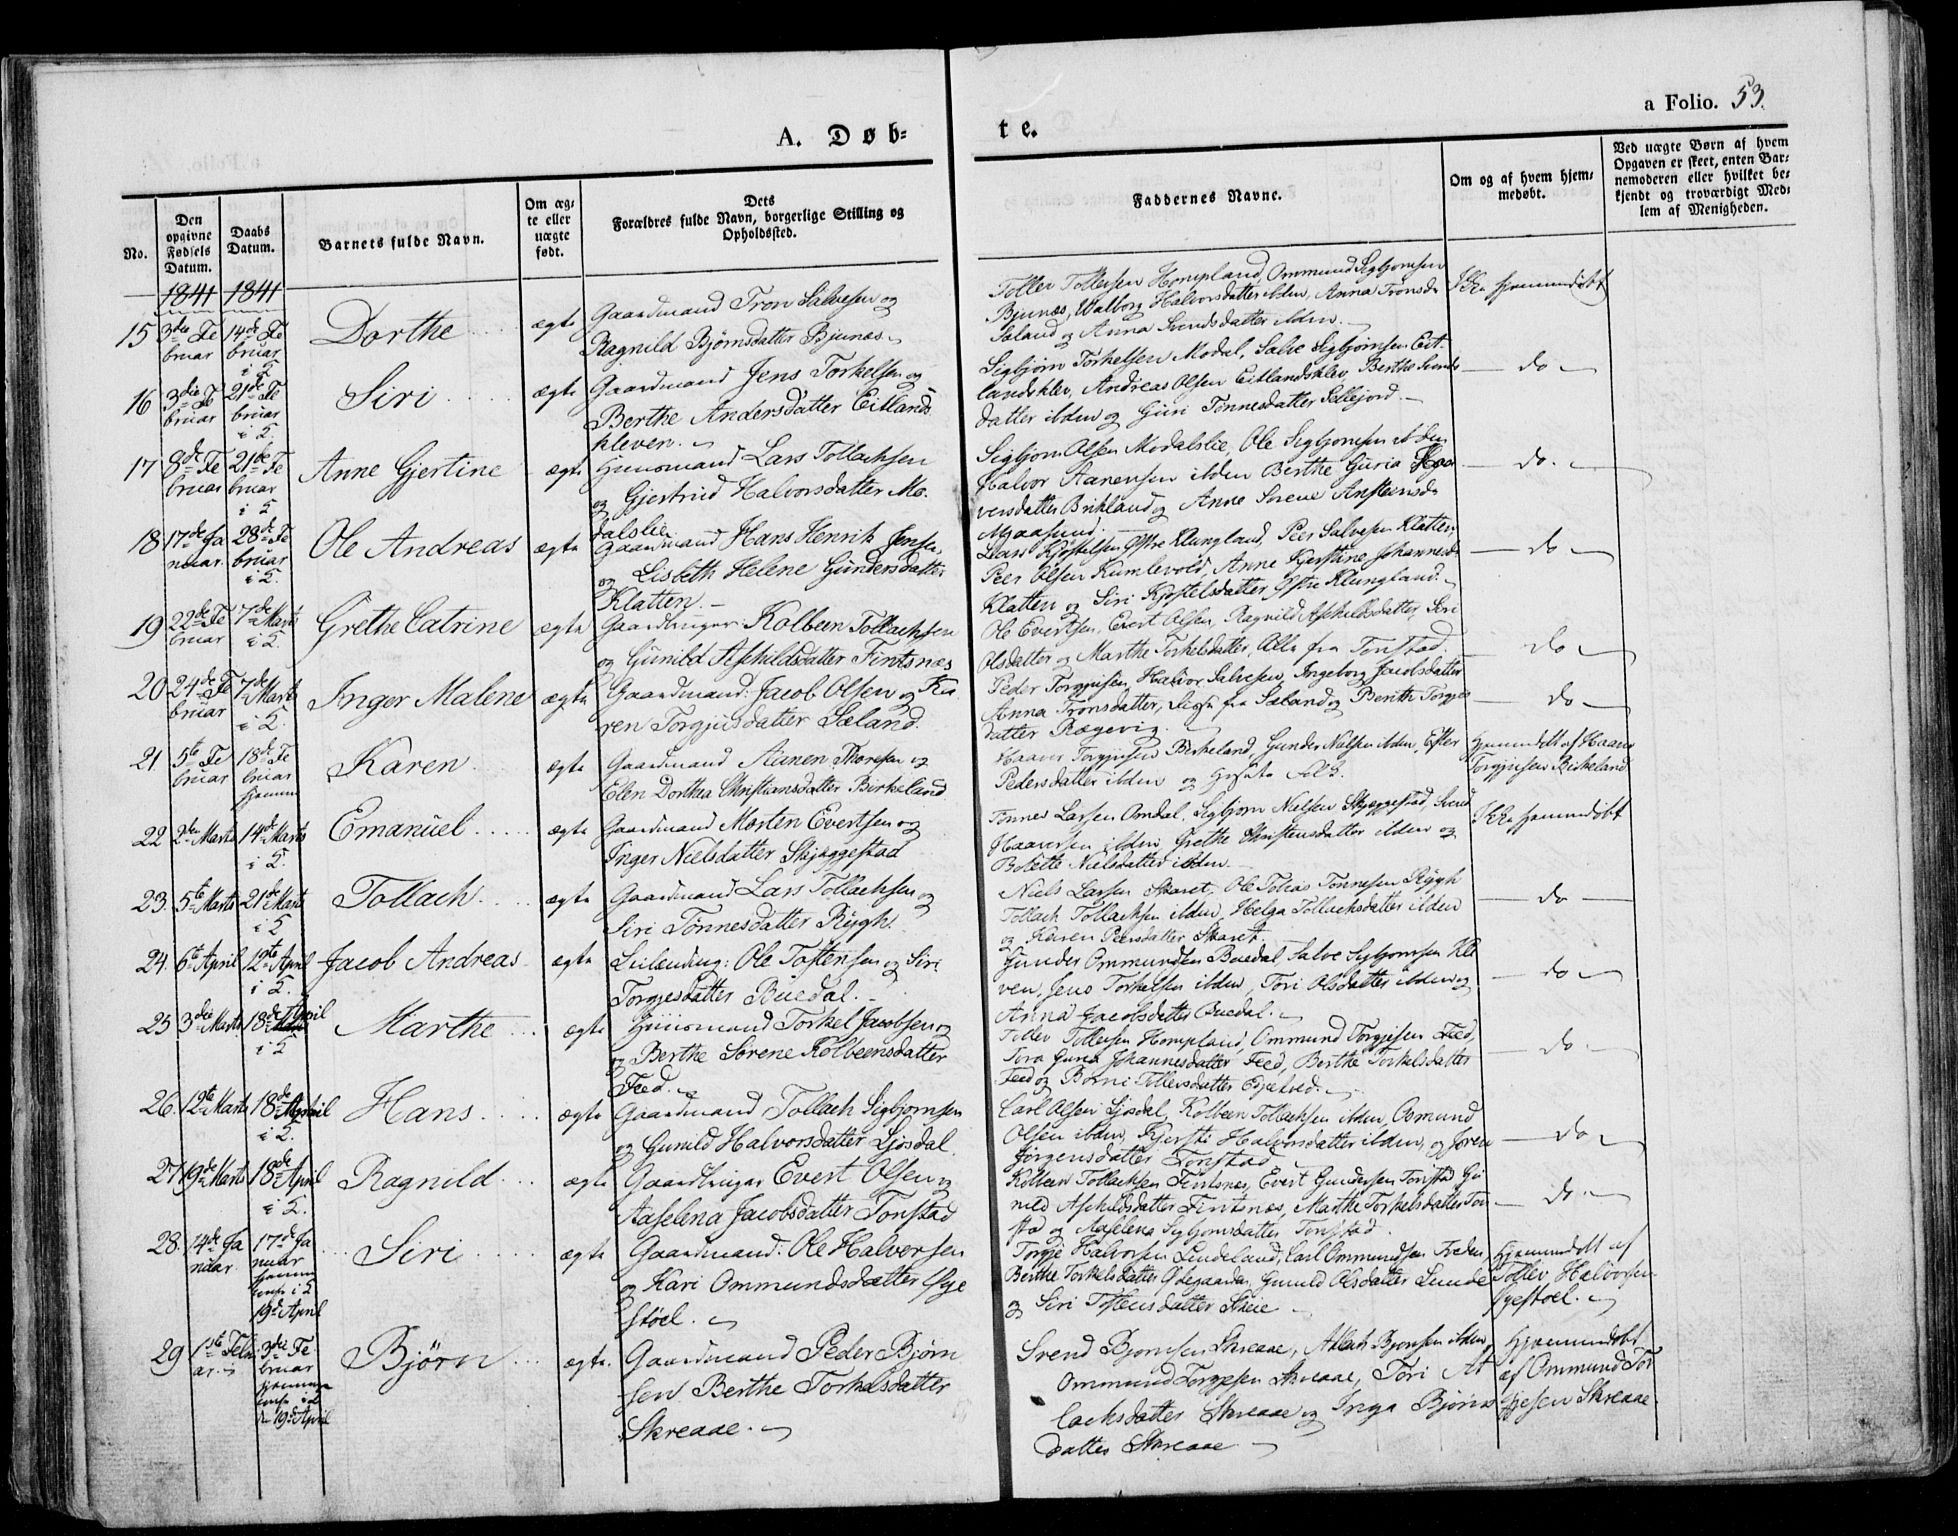 a Folio. 53.
A. Døb=
te.
No.
Den opgivne Fødsels Datum.
Daabs Datum.
Barnets fulde Navn.
Om æg= te eller uægte født.
Dets Forældres fulde Navn, borgerlige Stilling og Opholdssted.
Faddernes Navne.
Om og af hvem hjem= medøbt.
Ved uægte Børn af hvem Opgaven er skeet, enten Bar= nemoderen eller hvilket be= kjendt og troværdigt Med= lem af Menigheden.
1841 1841
15 3die Fe bruar 14de Fe bruar i K. Dorthe ægte
Gaardmand Tron Salvesen og
Ragnild Bjørnsdatter Bjunes.
Tollev Tollevsen Hompland, Ommund Sigbjornsen
Bjunes, Walborg Halvorsdatter ibden, Anna Tronsd.
Saland og Anna Svendsdatter ibden.
Ikke hjemmedöbt
16 3die Fe bruar 21de Fe bruar i K. Siri ægte
Gaardmand Jens Torkelsen og
Berthe Andersdatter Eitlands
kleven.
Sigbjørn Torkelsen Modal, Salve Sigbjørnsen Eit
landsklev, Andreas Olsen Eitlandsklev, Berthe Svends
datter ibden og Guri Tönnesdatter Fellejord.
do
17 8de Fe bruar 21de Fe bruar i K. Anne Gjertine ægte
Huusmand Lars Tollachsen
og Gjertrud Halvorsdatter Mo.
dalslie.
Sigbjorn Olsen Modalslie, Ole Sigbjornsen ibden
Halvor Aanensen ibden Berthe Guria Haa
versdatter Birkland og Anne Sorene Anstensd.
Mgaasund.
do.
18 17de Ja nuar. 28de Fe bruar i K. Ole Andreas ægte
Gaardmand Hans Henrik Jensen
og Lisbeth Helene Gundersdatter
Klatten.
Lars Kjøstelsen Østre Klungland, Peer Salvesen Klatten,
Peer Olsen Kumlevold, Anne Kjerstine Johannesd.
Klatten og Siri Kjøstelsdatter Østre Klungland.
do
19 22de Fe bruar 7de Marts i K. Grethe Catrine ægte
Gaardbruger Kolbeen Tollachsen
og Gunild Aschildsdatter Fintsnæs
Ole Evertsen, Evert Olsen, Ragnild Aschildsdatter, Siri
Olsdatter og Marthe Torkelsdatter, Alle fra Tonstad.
do
20 24de Fe bruar 7de Marts i K. Inger Malene ægte
Gaardmand: Jacob Olsen og Ka
ren Torgjusdatter Sæland.
Peder Torgjusen, Halvor Salvesen, Ingeborg Jacobsdatter
Anna Tronsdatter, fra Sæland og Berith Torgjes
datter Rægevig.
do
21 5te Fe bruar 18de Fe bruar hjemme Karen ægte
Gaardmand Aanen Thoresen og
Elen Dorthea Christiansdatter Birkeland
Haaver Torgjusen Birkeland, Gunder Nielsen ibden, Ester
Pedersdatter ibden og
Hjemmedöbt af Haaver
Torgjusen Birkeland
22 2den Marts 14de Marts i K. Emanuel ægte
Gaardmand Morten Evertsen og
Inger Nielsdatter Skjæggestad
Tönnes Larsen Omdal, Sigbjorn Nielsen Skjæggestad, Svend
Haaversen ibden, Grethe Christensdatter ibden og
Bolette Nielsdatter ibden
Ikke hjemmedöbt
23. 5te Marts 21de Marts i K. Tollach ægte
Gaardmand Lars Tollachsen og
Siri Tönnesdatter Rÿgh.
Niels Larsen Skaret, Ole Tobias Tönnesen Rÿgh
Tollach Tollachsen ibden, Helga Tollachsdatter ibden
og Karen Peersdatter Skaret.
do
24. 6te April 12te April i K. Jacob Andreas ægte
Leilending: Ole Tostensen og Siri
Torgjesdatter Buedal.
Gunder Ommundsen Buedal Salve Sigbjornsen Kle
ven, Jens Torkelsen ibden, Tori Olsdatter ibden og
Anna Jacobsdatter Buedal.
do
25 3die Marts 18de April i K. Marthe ægte
Huusmand Torkel Jacobsen og
og Berthe Sorene Kolbeensdatter
Feed.
Tollev Tollevsen Hompland, Ommund Torgjesen Feed,
Tora Guria Johannesdatter Feed, Berthe Torkelsdatter
Feed og Borni Tollevsdatter Gjetved.
do
26. 12te Marts 18de April i K. Hans ægte
Gaardmand Tollach Sigbjornsen
og Gunild Halvorsdatter Ljosdal.
Carl Olsen Ljosdal, Kolbeen Tollachsen ibden, Osmund
Olsen ibden, Kjersti Halvorsdatter ibden, og Joren
Jörgensdatter Tonstad
do
27 19de Marts 18de April i K. Ragnild ægte
Gaardbruger Evert Olsen og
Aaselena Jacobsdatter Tonstad
Kolbeen Tollachsen Fintsnæs, Evert Gundersen Tonstad, Gu
nild Aschildsdatter Fintsnæs, Marthe Torkelsdatter Ton
stad og Aaselena Sigbjornsdatter Tonstad.
do.
28. 14de Ja nuar 17de Ja nuar hjemme i K. 19de April Siri ægte
Gaardmand: Ole Halvorsen
og Kari Ommundsdatter Øye
støel.
Torgje Halvorsen Lindeland, Carl Ommundsen Træden,
Berthe Torkelsdatter Ødegaarden, Gunild Olsdatter Lunde
og Siri Tostensdatter Skeie
Hjemmedöbt af
Tollev Halvorsen
Øyestoel.
29 1ste Febru ar. 3die Fe bruar hjemme i K. den 19de April Bjørn ægte.
Gaardmand Peder Bjørn
sen Berthe Torkelsdatter
Skreaae.
Svend Bjornsen Skreaae, Atlach Bjornsen ibden,
Ommund Torgjesen Skreaae, Tori At
lachsdatter Skreaae og Inga Bjørns
datter Skreaae
Hjemmedobt
af Ommund Tor
gjesen Skreaae